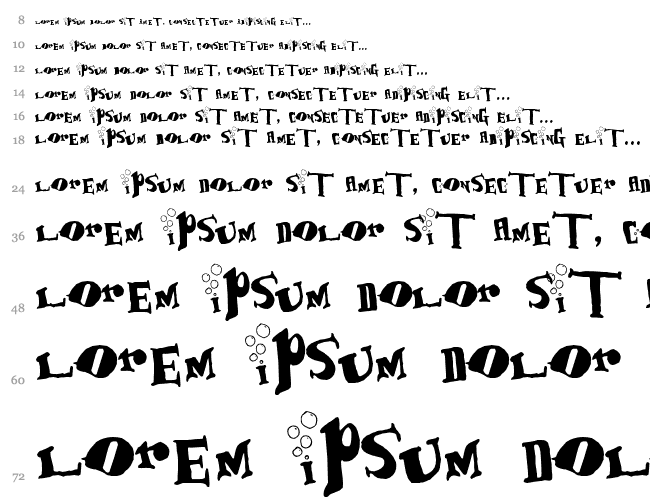 8 LOREM IPSUM DOLOR SIT AMET, CONSECTETUER ADIPISCING ELIT...
10 LOREM IPSUM DOLOR SIT AMET, CONSECTETUER ADIPISCING ELIT...
12 LOREM IPSUM DOLOR SIT AMET, CONSECTETUER ADIPISCING ELIT...
14 LOREM IPSUM DOLOR SIT AMET, CONSECTETUER ADIPISCING ELIT...
16 LOREM IPSUM DOLOR SIT AMET, CONSECTETUER ADIPISCING ELIT...
18 LOREM IPSUM DOLOR SIT AMET, CONSECTETUER ADIPISCING ELIT...
24 LOREM IPSUM DOLOR SIT AMET, CONSECTETUER AD
36 LOREM IPSUM DOLOR SIT AMET, CO
48 LOREM IPSUM DOLOR SIT
60 LOREM IPSUM DOLOR
72 LOREM IPSUM DOL